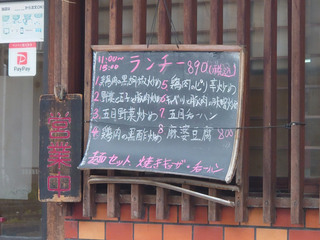 PayPay
営業中
11:00〜
15:00
ランチー 890(税込)
1 鶏肉の黒胡椒炒め
2 野菜と玉子と豚肉炒め
3 五目野菜炒め
4 鶏肉の黒酢炒め
5 鶏肉のピリ辛炒め
7 五目チャーハン
8 麻婆豆腐 800
麺セット 焼きギョーザ・チャーハン